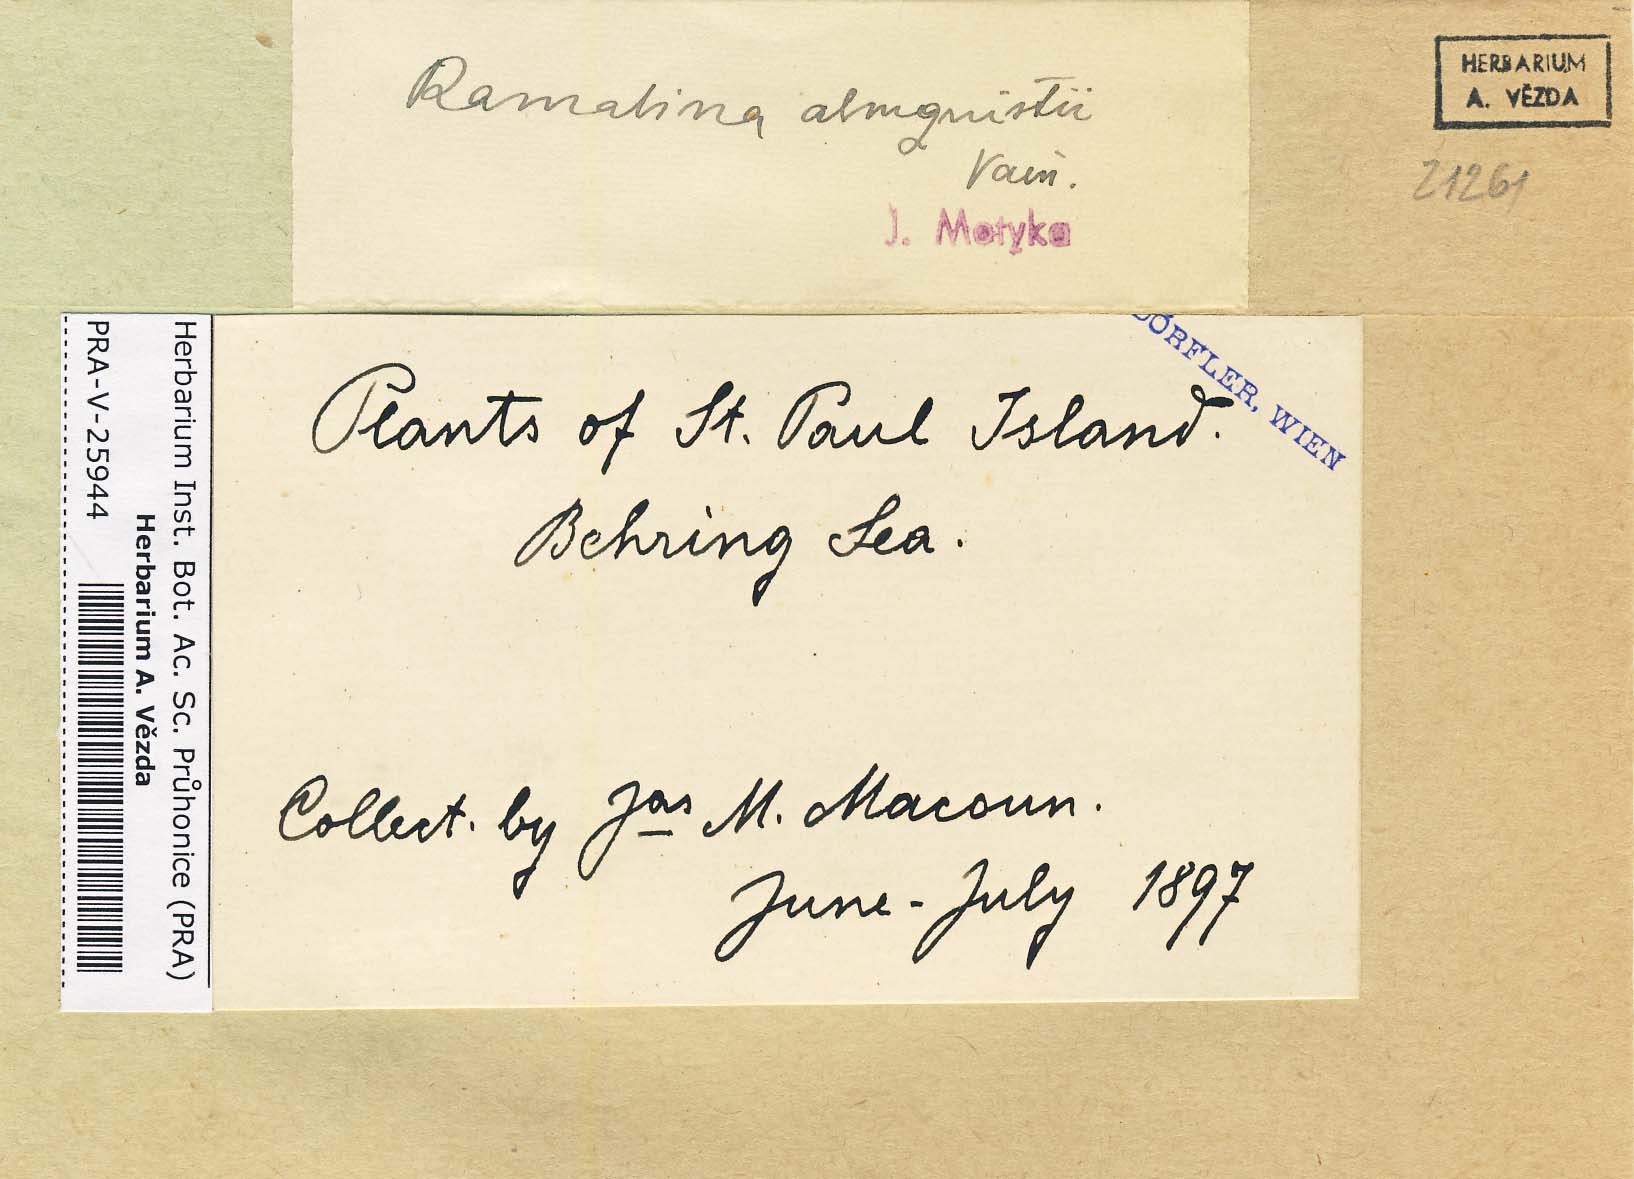 Ramalina almquistii
Vain.
J. Motyka
HERBARIUM
A. VĚZDA
21261
ÖRFLER, WIEN
Plants of St. Paul Island.
Behring Sea.
Collect. by Jas M. Macoun.
June - July 1897
Herbarium Inst. Bot. Ac. Sc. Průhonice (PRA)
Herbarium A. Vězda
PRA-V-25944